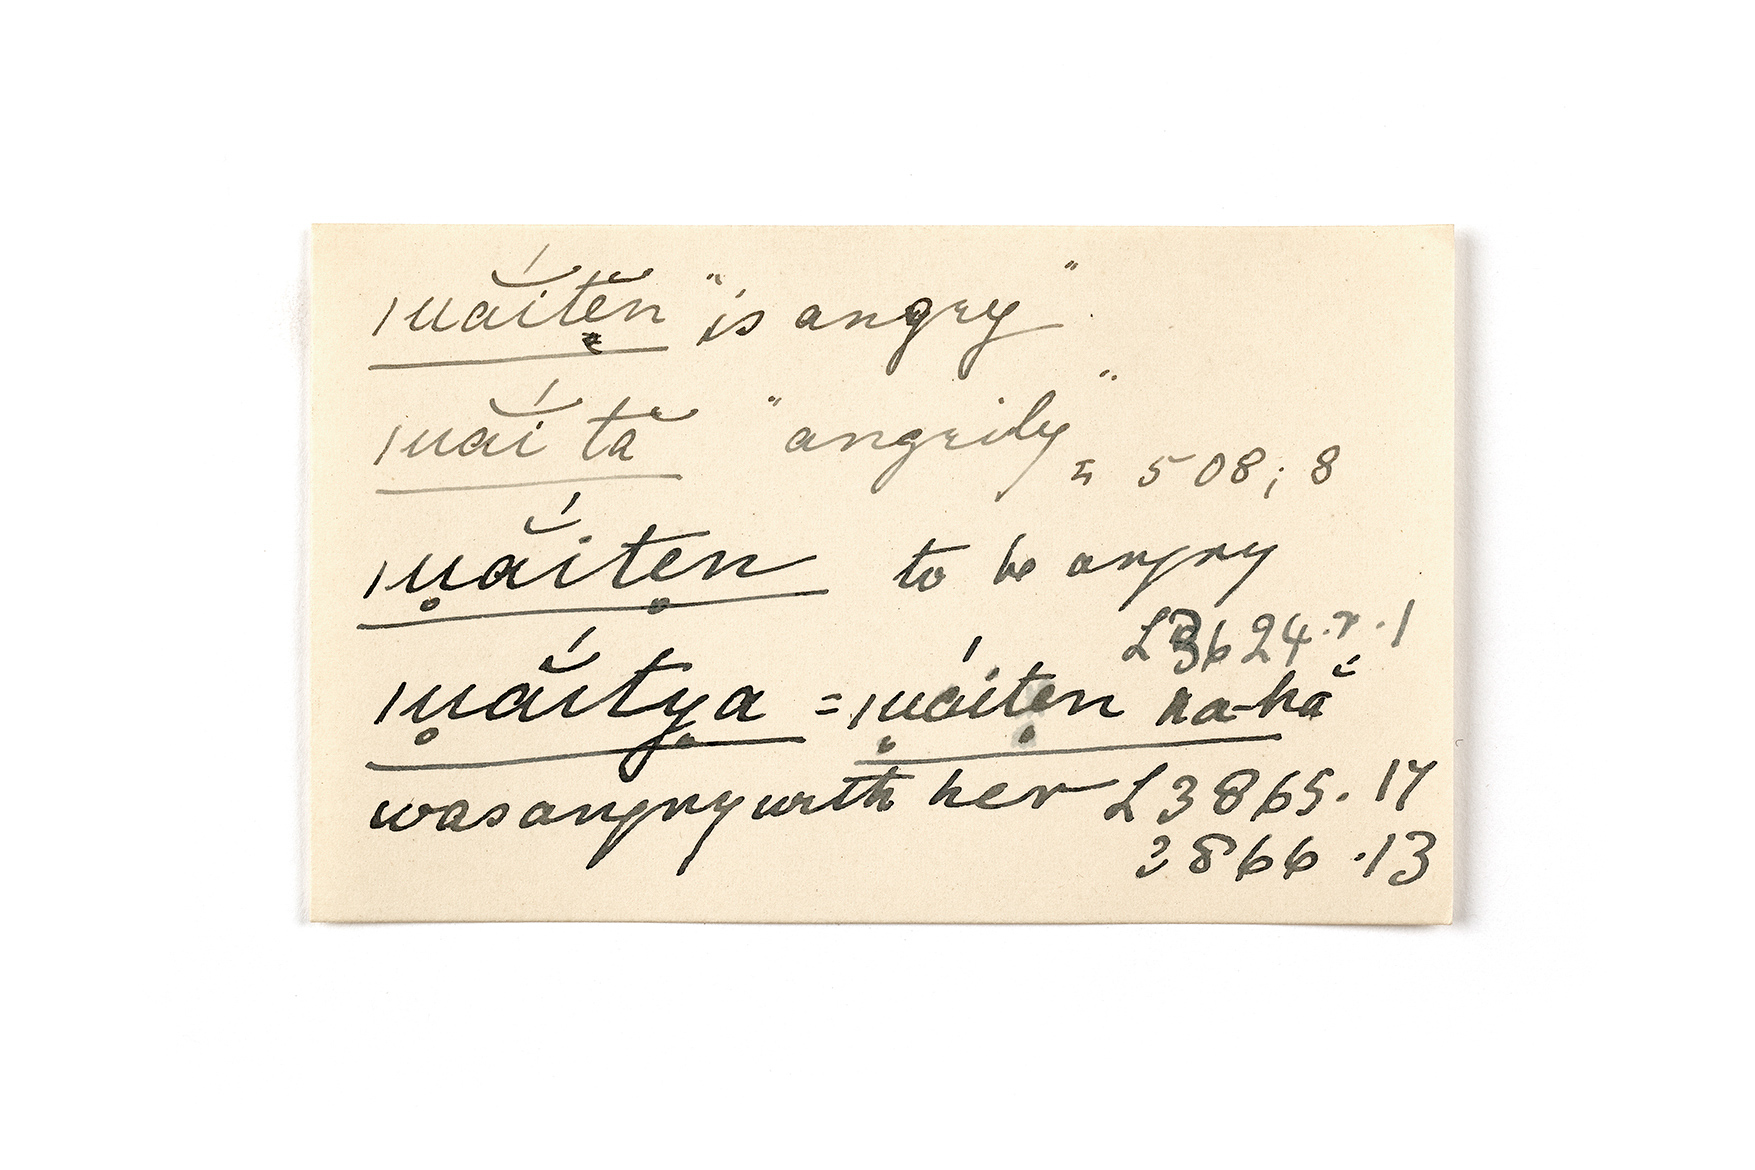 ǀuắitĕn̥ "is angry"
ǀuắi tă "angrily"
= 508; 8
ǀu̥ắite̥n to be angry
L3624.r.1
ǀu̥ắity̥a = ǀu̥áite̥n ha-hă
was angry with her L3865.17
3866.13